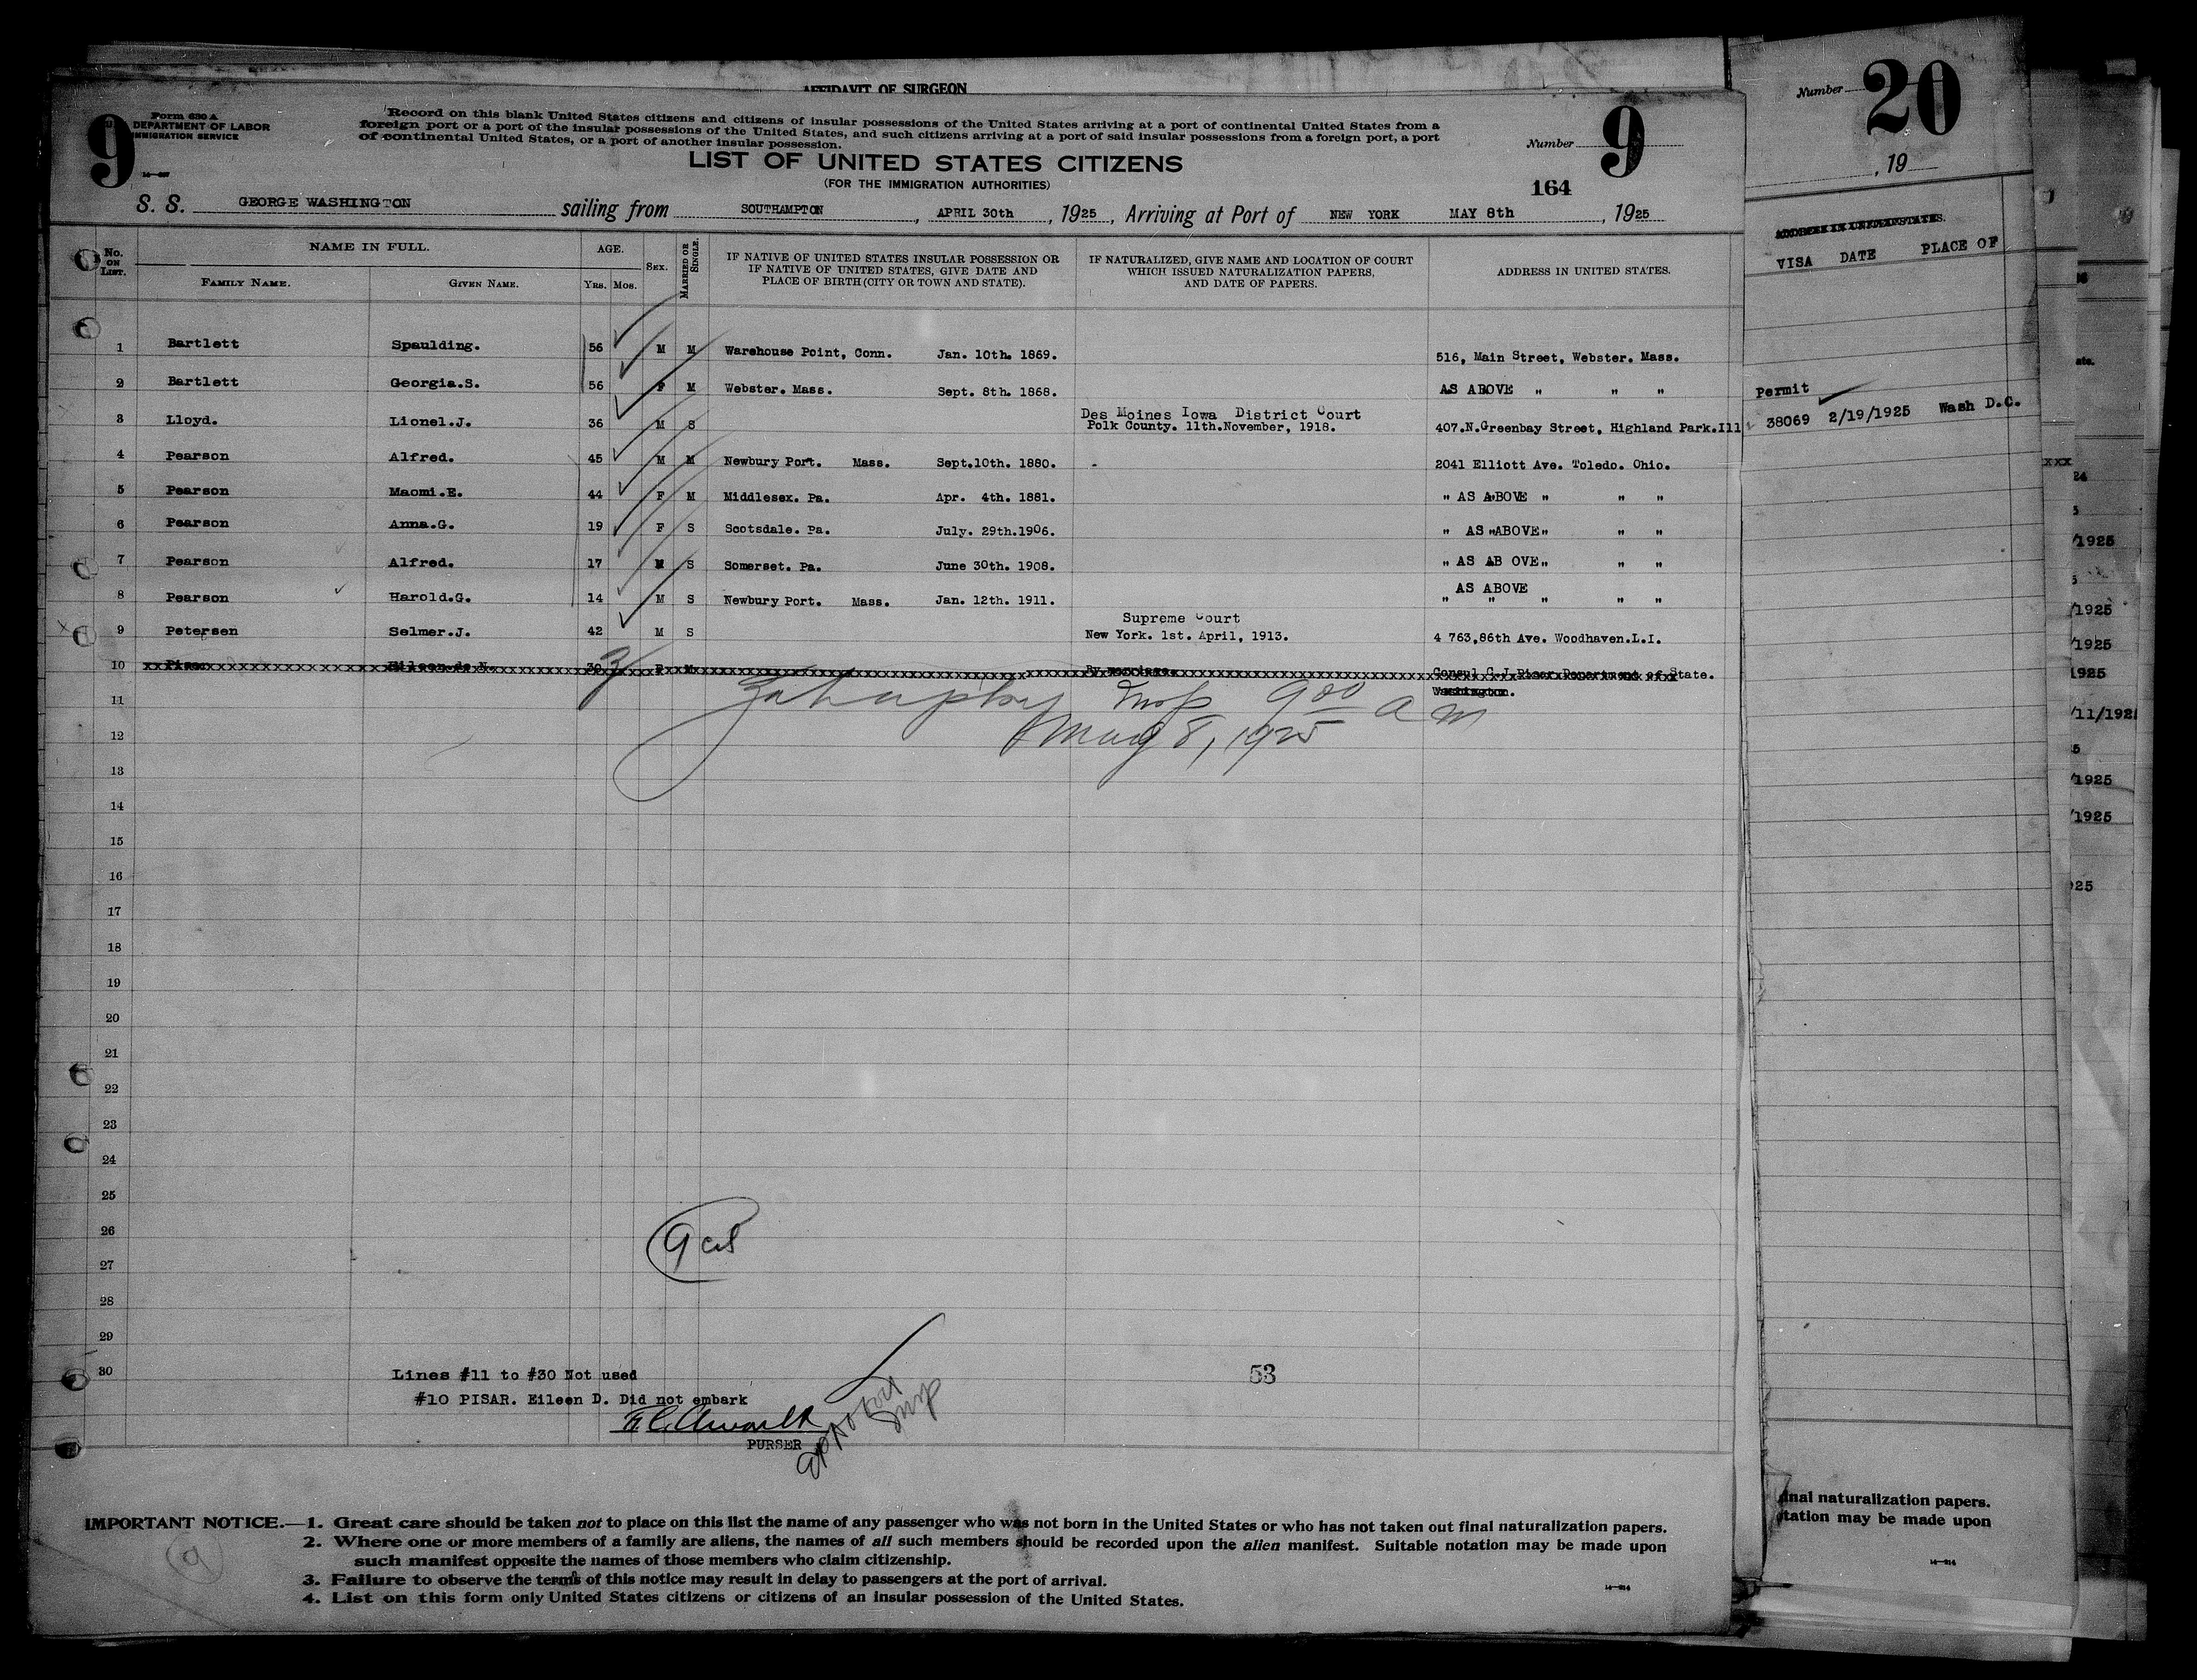 AFFIDAVIT OF SURGEON
9
Form 630 A
DEPARTMENT OF LABOR
IMMIGRATION SERVICE
Record on this blank United States citizens and citizens of insular possessions of the United States arriving at a port of continental United States from a
foreign port or a port of the insular possessions of the United States, and such citizens arriving at a port of said insular possessions from a foreign port, a port
of continental United States, or a port of another insular possession.
Number 9
LIST OF UNITED STATES CITIZENS
(FOR THE IMMIGRATION AUTHORITIES)
164
S. S. GEORGE WASHINGTON sailing from SOUTHAMPTON, APRIL 30th, 1925, Arriving at Port of NEW YORK MAY 8th, 1925
No. ON LIST. NAME IN FULL. AGE. SEX. MARRIED OR SINGLE. IF NATIVE OF UNITED STATES INSULAR POSSESSION OR IF NATIVE OF UNITED STATES, GIVE DATE AND PLACE OF BIRTH (CITY OR TOWN AND STATE). IF NATURALIZED, GIVE NAME AND LOCATION OF COURT WHICH ISSUED NATURALIZATION PAPERS, AND DATE OF PAPERS. ADDRESS IN UNITED STATES.
FAMILY NAME. GIVEN NAME. YRS. MOS.
1 Bartlett Spaulding. 56 M M Warehouse Point, Conn. Jan. 10th. 1869. 516, Main Street, Webster. Mass.
2 Bartlett Georgia.S. 56 F M Webster. Mass. Sept. 8th. 1868. AS ABOVE " " "
3 Lloyd. Lionel.J. 36 M S Des Moines Iowa District Court
Polk County. 11th.November, 1918. 407.N.Greenbay Street, Highland Park.Ill
4 Pearson Alfred. 45 M M Newbury Port. Mass. Sept.10th. 1880. - 2041 Elliott Ave. Toledo. Ohio.
5 Pearson Maomi.E. 44 F M Middlesex. Pa. Apr. 4th. 1881. " AS ABOVE " " "
6 Pearson Anna.G. 19 F S Scotsdale. Pa. July. 29th.1906. " AS "ABOVE" " "
7 Pearson Alfred. 17 M S Somerset. Pa. June 30th. 1908. " AS AB OVE" " "
8 Pearson Harold.G. 14 M S Newbury Port. Mass. Jan. 12th. 1911. AS ABOVE
" " " " "
9 Petersen Selmer.J. 42 M S Supreme Court
New York. 1st. April, 1913. 4 763,86th Ave. Woodhaven.L.I.
10 Pisar Eileen de N. 30 F M By marriage. Consul C.J.Pisar Department of State.
Washington.
9 00 a m
May 8, 1925
11
12
13
14
15
16
17
18
19
20
21
22
23
24
25
26
27
28
29
30
Lines #11 to #30 Not used
#10 PISAR. Eileen D. Did not embark
PURSER
53
IMPORTANT NOTICE.—1. Great care should be taken not to place on this list the name of any passenger who was not born in the United States or who has not taken out final naturalization papers.
2. Where one or more members of a family are aliens, the names of all such members should be recorded upon the alien manifest. Suitable notation may be made upon
such manifest opposite the names of those members who claim citizenship.
3. Failure to observe the terms of this notice may result in delay to passengers at the port of arrival.
4. List on this form only United States citizens or citizens of an insular possession of the United States.
9
14—214
Number 20
, 19
ADDRESS IN UNITED STATES.
VISA DATE PLACE OF
Permit
38069 2/19/1925 Wash D.C.
inal naturalization papers.
otation may be made upon
14—214
xxx
24
/1925
/1925
/1925
1925
/11/192
/1925
/1925
25